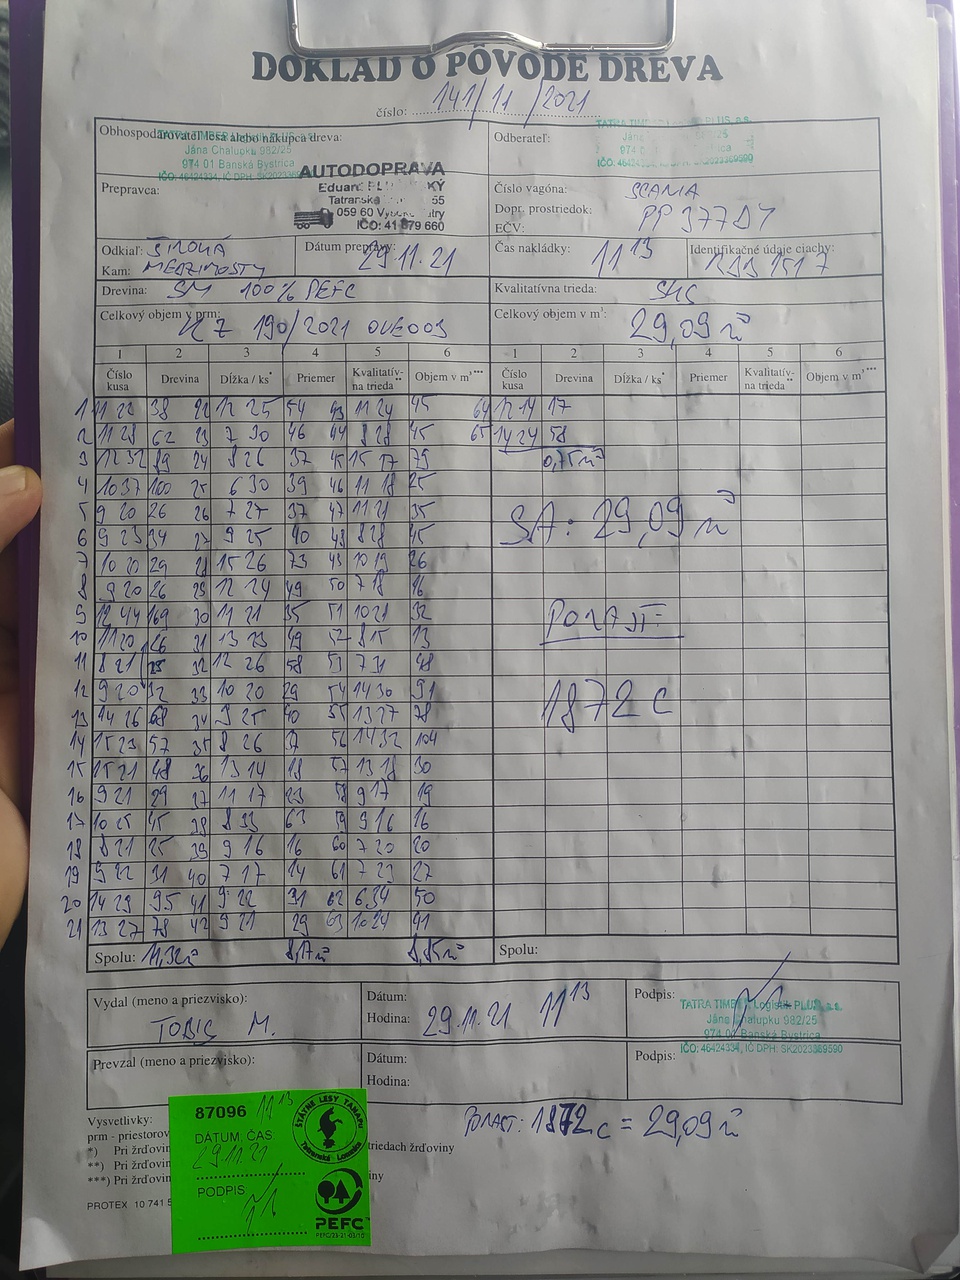 DOKLAD O PÔVODE DREVA
číslo: 141/11/2021
Obhospodarovateľ lesa alebo nákupca dreva:
TATRA TIMBER Logistik PLUS, a.s.
Jána Chalupku 982/25
974 01 Banská Bystrica
IČO: 46424334, IČ DPH: SK2023369590
Odberateľ:
TATRA TIM PLUS, a.s.
Jána
974 Bystrica
IČO: 46424334, IČ DPH: SK2023369590
Prepravca:
AUTODOPRAVA
Eduard
Tatranská 55
059 60 Vysoké Tatry
IČO: 41 879 660
Číslo vagóna: SCANIA
Dopr. prostriedok:
EČV: PP 377DY
Odkiaľ: ŠIROKÁ
Kam: MEDZIMOSTY
Dátum prepravy: 29.11.21
Čas nakládky: 11 13
Identifikačné údaje ciachy:
Drevina: SM 100% PEFC
Kvalitatívna trieda:
Celkový objem v prm: KZ 190/2021 OVE003
Celkový objem v m³: 29,09 m³
1 2 3 4 5 6 1 2 3 4 5 6
Číslo kusa Drevina Dĺžka / ks* Priemer Kvalitatívna trieda** Objem v m³*** Číslo kusa Drevina Dĺžka / ks* Priemer Kvalitatívna trieda** Objem v m³***
1 11 22 38 22 12 25 54 43 11 24 45 64 12 14 17
2 11 28 62 23 7 30 46 44 8 28 45 65 14 24 58
3 12 32 89 24 8 26 37 45 15 17 79 0,75 m³
4 10 37 100 25 6 30 39 46 11 18 25
5 9 20 26 26 7 27 37 47 11 21 35
SA: 29,09 m³
6 9 23 34 27 9 25 40 48 8 28 45
7 10 20 29 28 15 26 73 49 10 19 26
8 9 20 26 29 12 24 49 50 7 18 16
9 12 44 169 30 11 21 35 51 10 21 32
10 11 20 26 31 13 23 49 52 8 15 13
11 8 21 25 32 12 26 58 53 7 31 48
12 9 20 32 33 10 20 29 54 14 30 91
1872 C
13 14 26 68 34 9 25 40 55 13 27 78
14 15 23 57 35 8 26 37 56 14 32 104
15 15 21 48 36 13 14 18 57 13 18 30
16 9 21 29 37 11 17 23 58 9 17 19
17 10 25 45 38 8 33 63 59 9 16 16
18 8 21 25 39 9 16 16 60 7 20 20
19 9 22 31 40 7 17 14 61 7 23 27
20 14 29 95 41 9 22 31 62 6 34 50
21 13 27 78 42 9 21 29 63 10 24 41
Spolu: 11,32 m³ 8,17 m³ 8,85 m³ Spolu:
Vydal (meno a priezvisko): TOBIS M.
Dátum:
Hodina: 29.11.21 11 13
Podpis:
TATRA TIMBER Logistik PLUS, a.s.
Jána Chalupku 982/25
974 01 Banská Bystrica
IČO: 46424334, IČ DPH: SK2023369590
Prevzal (meno a priezvisko):
Dátum:
Hodina:
Podpis:
Vysvetlivky:
prm - priestorov
*) Pri žrďovin
**) Pri žrďovin
***) Pri žrďovin
triedach žrďoviny
iny
1872 c = 29,09 m³
PROTEX 10 741 5
87096 11 13
DÁTUM, ČAS
29.11.21
PODPIS
ŠTÁTNE LESY TANAPU
Tatranská Lomnica
PEFC
PEFC/23-21-03/10